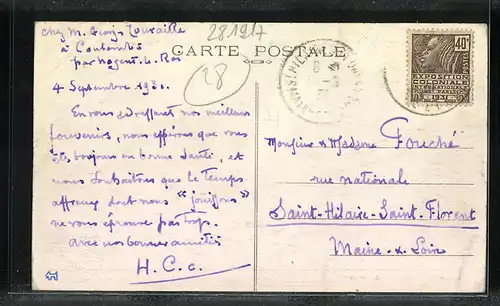 chez M. Georges Touraille
à Coutumes
par Nogent-le-Roi
281917
28
CARTE POSTALE
4 Septembre 1930.
En vous adressant nos meilleurs
souvenirs, nous espérons que vous
êtes toujours en bonne santé, et
nous souhaitons que le temps
affreux dont nous "jouissons"
ne vous éprouve pas trop.
avec nos bonnes amitiés
H. C. c.
Monsieur & Madame Fouché
rue nationale
Saint-Hilaire-Saint-Florent
Maine-&-Loire
40c
POSTES
EXPOSITION
COLONIALE
INTERNATIONALE
PARIS
1931